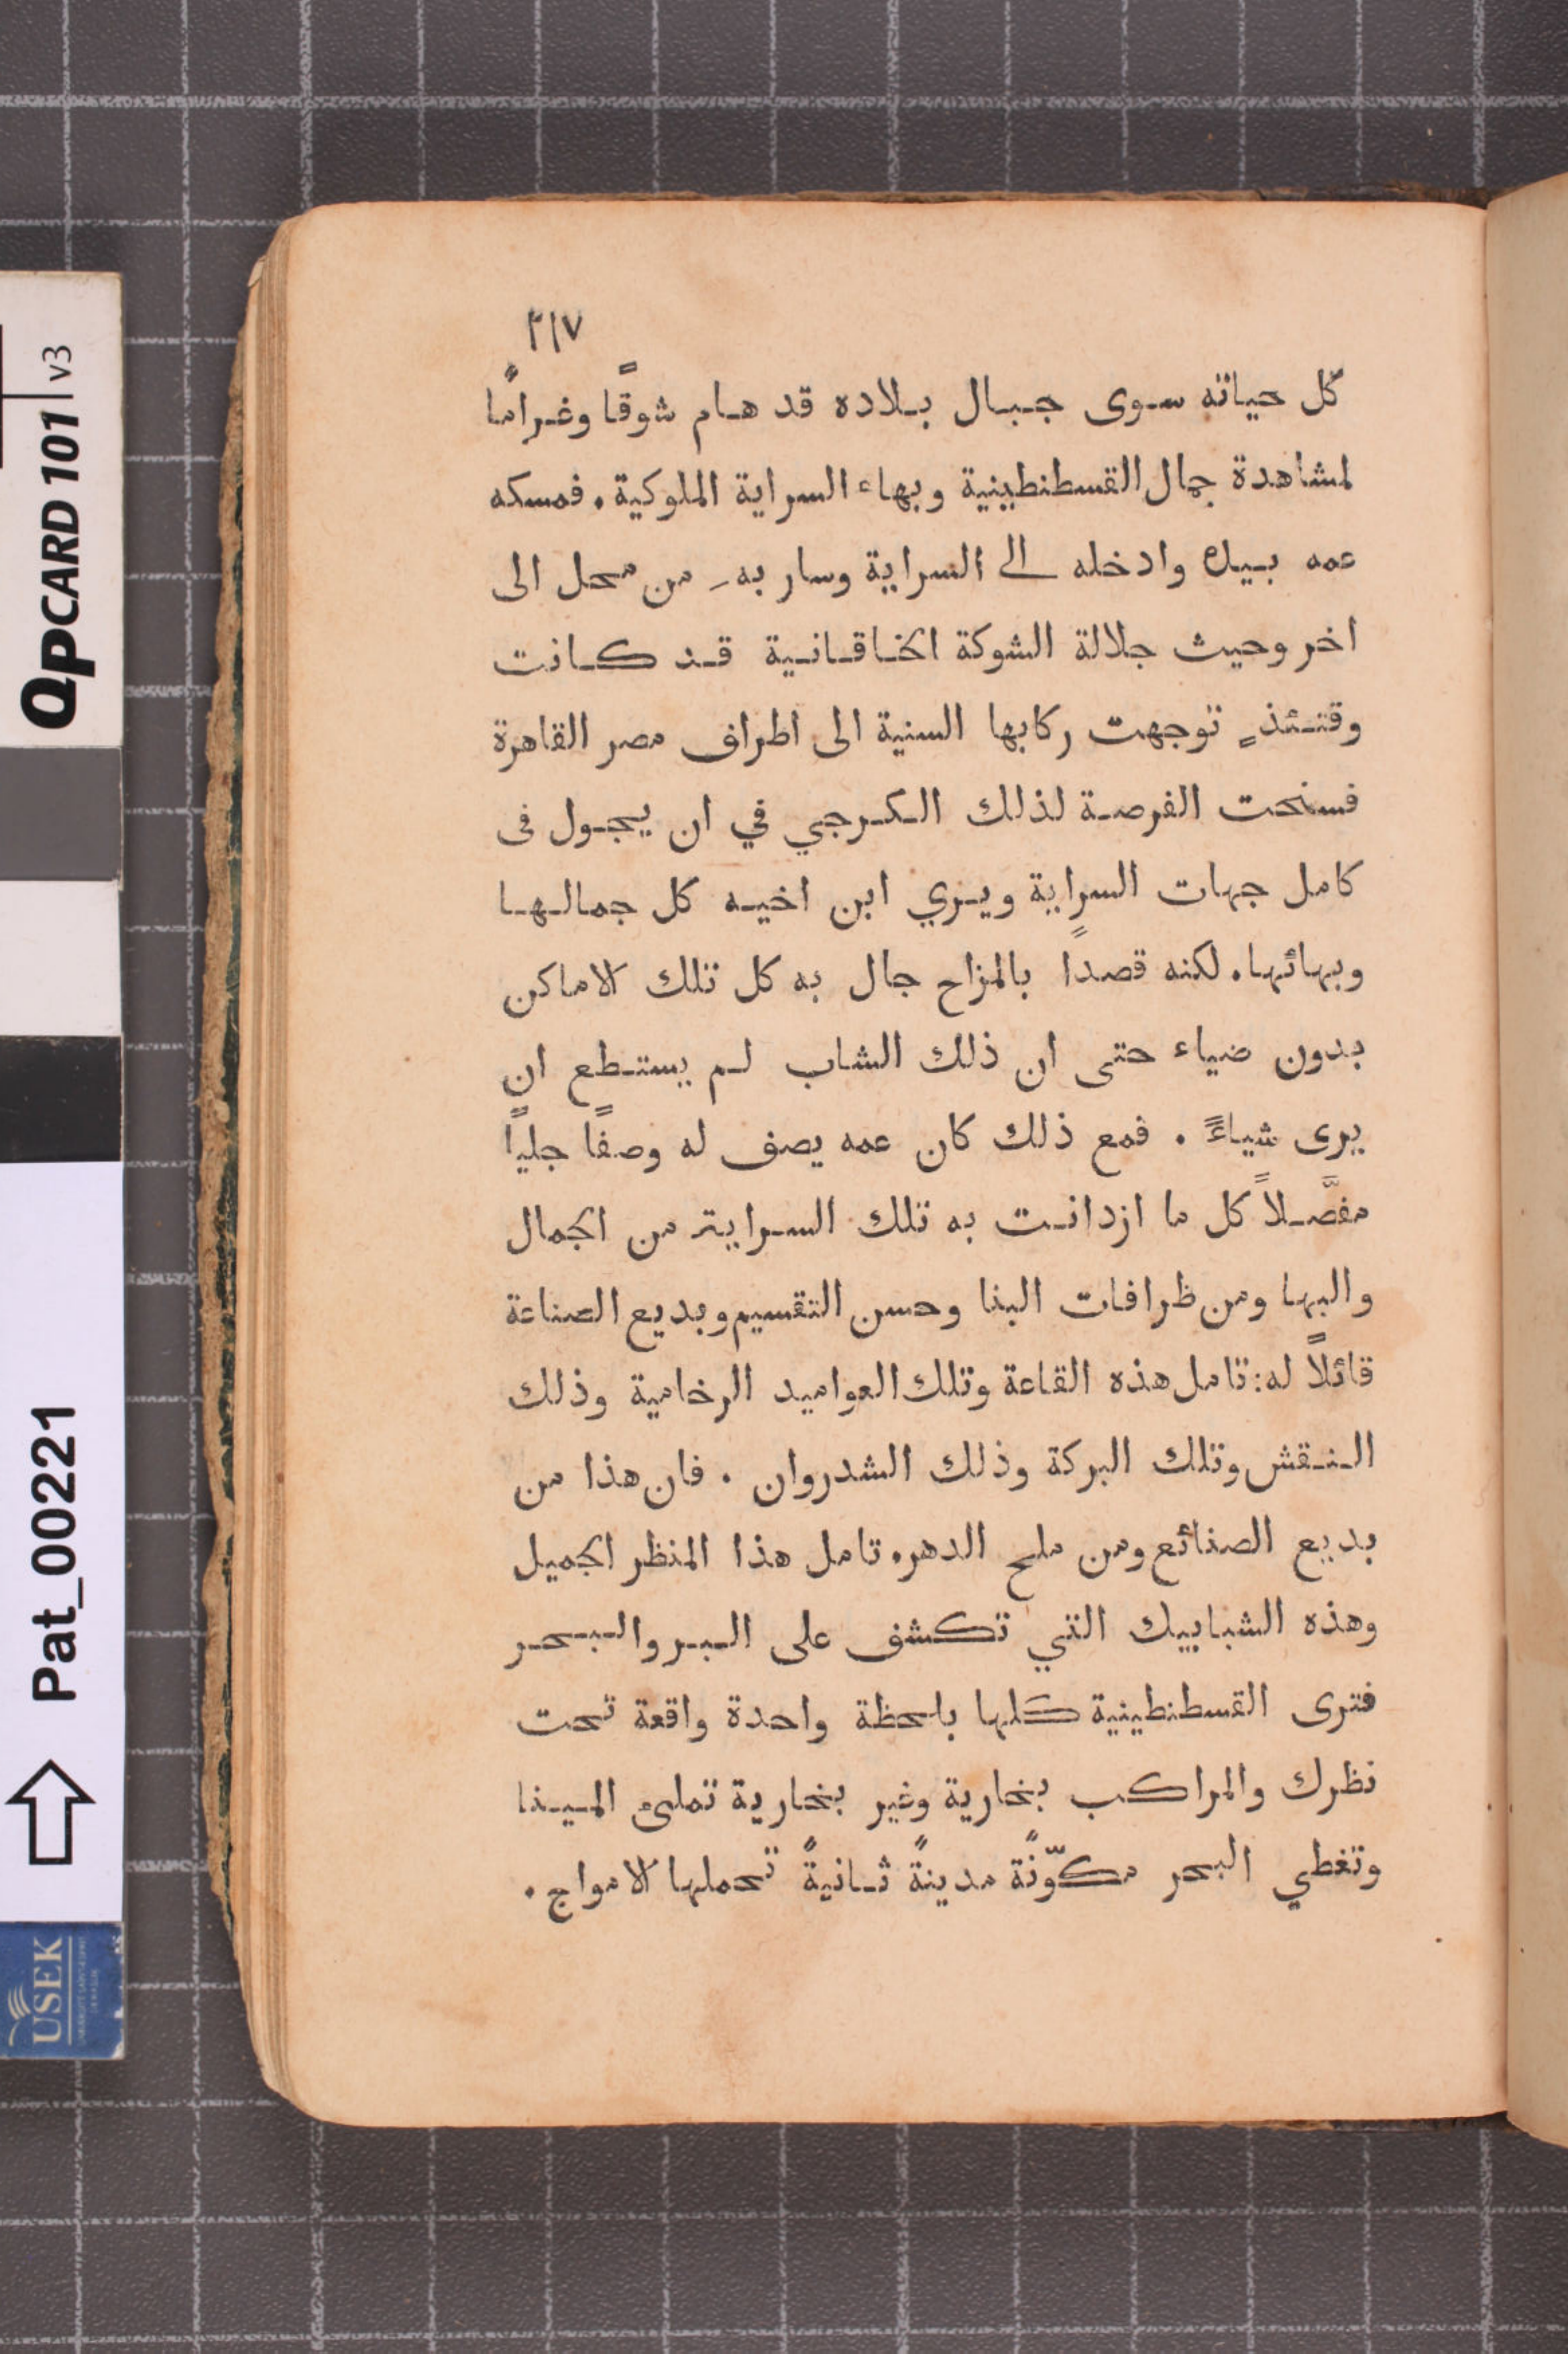 ٢١٧
كل حياته سوى جبال بلاده قد هام شوقًا وغرامًا
لمشاهدة جمال القسطنطينية وبهاء السراية الملوكية. فمسكه
عمه بيده وادخله الى السراية وسار به من محل الى
اخر وحيث جلالة الشوكة الخاقانية قد كانت
وقتئذٍ توجهت ركابها السنية الى اطراف مصر القاهرة
فسنحت الفرصة لذلك الكرجي في ان يجول فى
كامل جهات السراية ويري ابن اخيه كل جمالها
وبهائها. لكنه قصدًا بالمزاح جال به كل تلك الاماكن
بدون ضياء حتى ان ذلك الشاب لم يستطع ان
يرى شياءً. فمع ذلك كان عمه يصف له وصفًا جليًا
مفصَّلاً كل ما ازدانت به تلك السراية من الجمال
والبها ومن ظرافات البنا وحسن التقسيم وبديع الصناعة
قائلاً له: تامل هذه القاعة وتلك العواميد الرخامية وذلك
النقش وتلك البركة وذلك الشدروان. فان هذا من
بديع الصنائع ومن ملح الدهر. تامل هذا المنظر الجميل
وهذه الشبابيك التي تكشف على البر والبحر
فترى القسطنطينية كلها بلحظة واحدة واقعة تحت
نظرك والمراكب بخارية وغير بخارية تملىء المينا
وتغطي البحر مكوّنةً مدينةً ثانيةً تحملها الامواج.
QPCARD 101 v3
Pat_00221
USEK